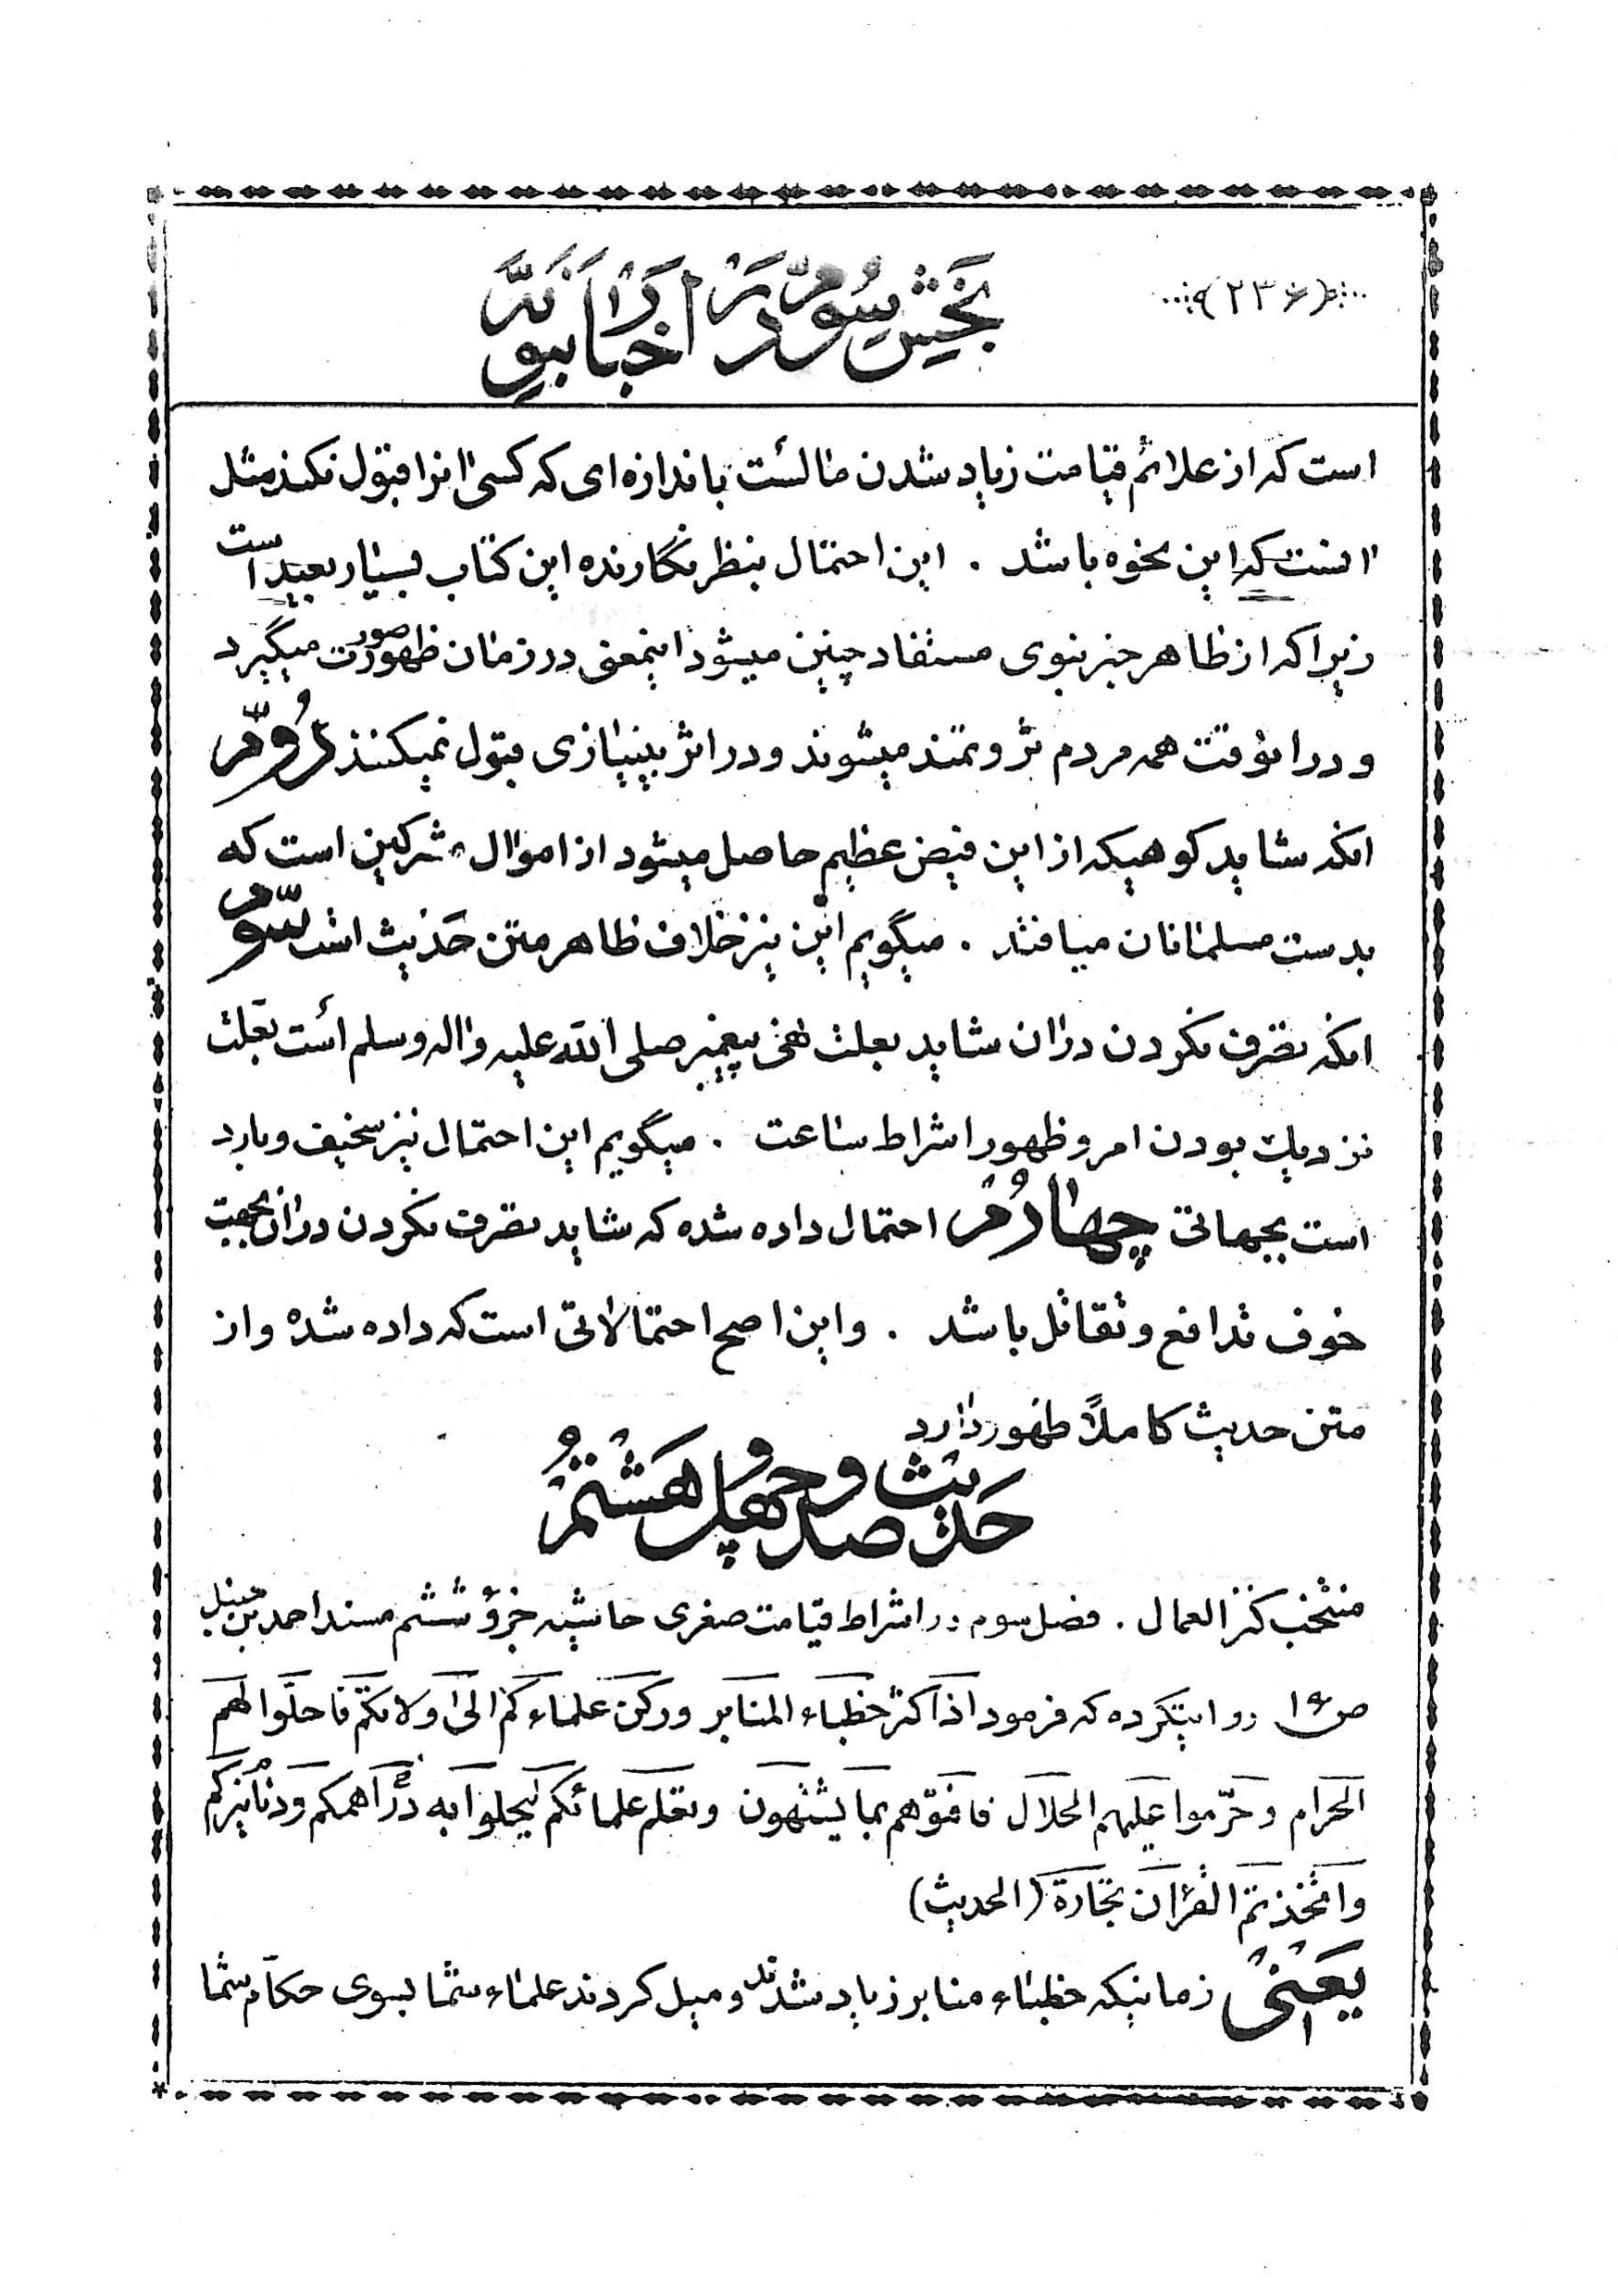 (۲۳۶)
بخش سوم در اخبار نبویه
است که از علائم قیامت زیاد شدن مالست باندازه‌ای که کسی انرا قبول نکند مثل
انست که این نحوه باشد . این احتمال بنظر نگارنده این کتاب بسیار بعید است
زیرا که از ظاهر خبر نبوی مستفاد چنین میشود اینمعنی در زمان ظهور صورت میگیرد
و در انوقت همه مردم ثروتمند میشوند و در اثر بینیازی قبول نمیکنند دوم
انکه شاید کوهیکه از این فیض عظیم حاصل میشود از اموال مشرکین است که
بدست مسلمانان میافتد . میگویم این نیز خلاف ظاهر متن حدیث است سوم
انکه تصرف نکردن دران شاید بعلت نهی پیغمبر صلی الله علیه واله وسلم است بعلت
نزدیک بودن امر و ظهور اشراط ساعت . میگویم این احتمال نیز سخیف و بارد
است بجهاتی چهارم احتمال داده شده که شاید تصرف نکردن دران بجهت
خوف تدافع و تقاتل باشد . و این اصح احتمالاتی است که داده شده و از
متن حدیث کاملاً ظهور دارد
حدیث صد و چهل و هشتم
منتخب کنز العمال . فصل سوم در اشراط قیامت صغری حاشیه جزؤ ششم مسند احمد بن حنبل
روایتکرده که فرمود اذا کثر خطباء المنابر ورکن علماءکم الی ولاتکم فاحلّوا لهم
الحرام وحرّموا علیهم الحلال فافتوهم بما یشتهون وتعلم علمائکم لیجلوا به دراهمکم ودنانیرکم
واتخذتم القران تجارة (الحدیث)
یعنی زمانیکه خطباء منابر زیاد شدند و میل کردند علماء شما بسوی حکام شما